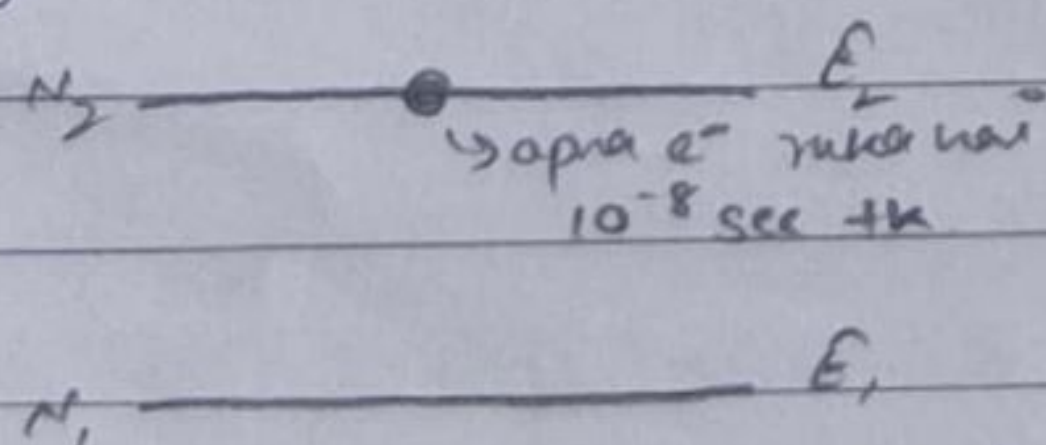 N₂ E₂
↳ apna e⁻ ruka hai
10⁻⁸ sec tk
N₁ E₁